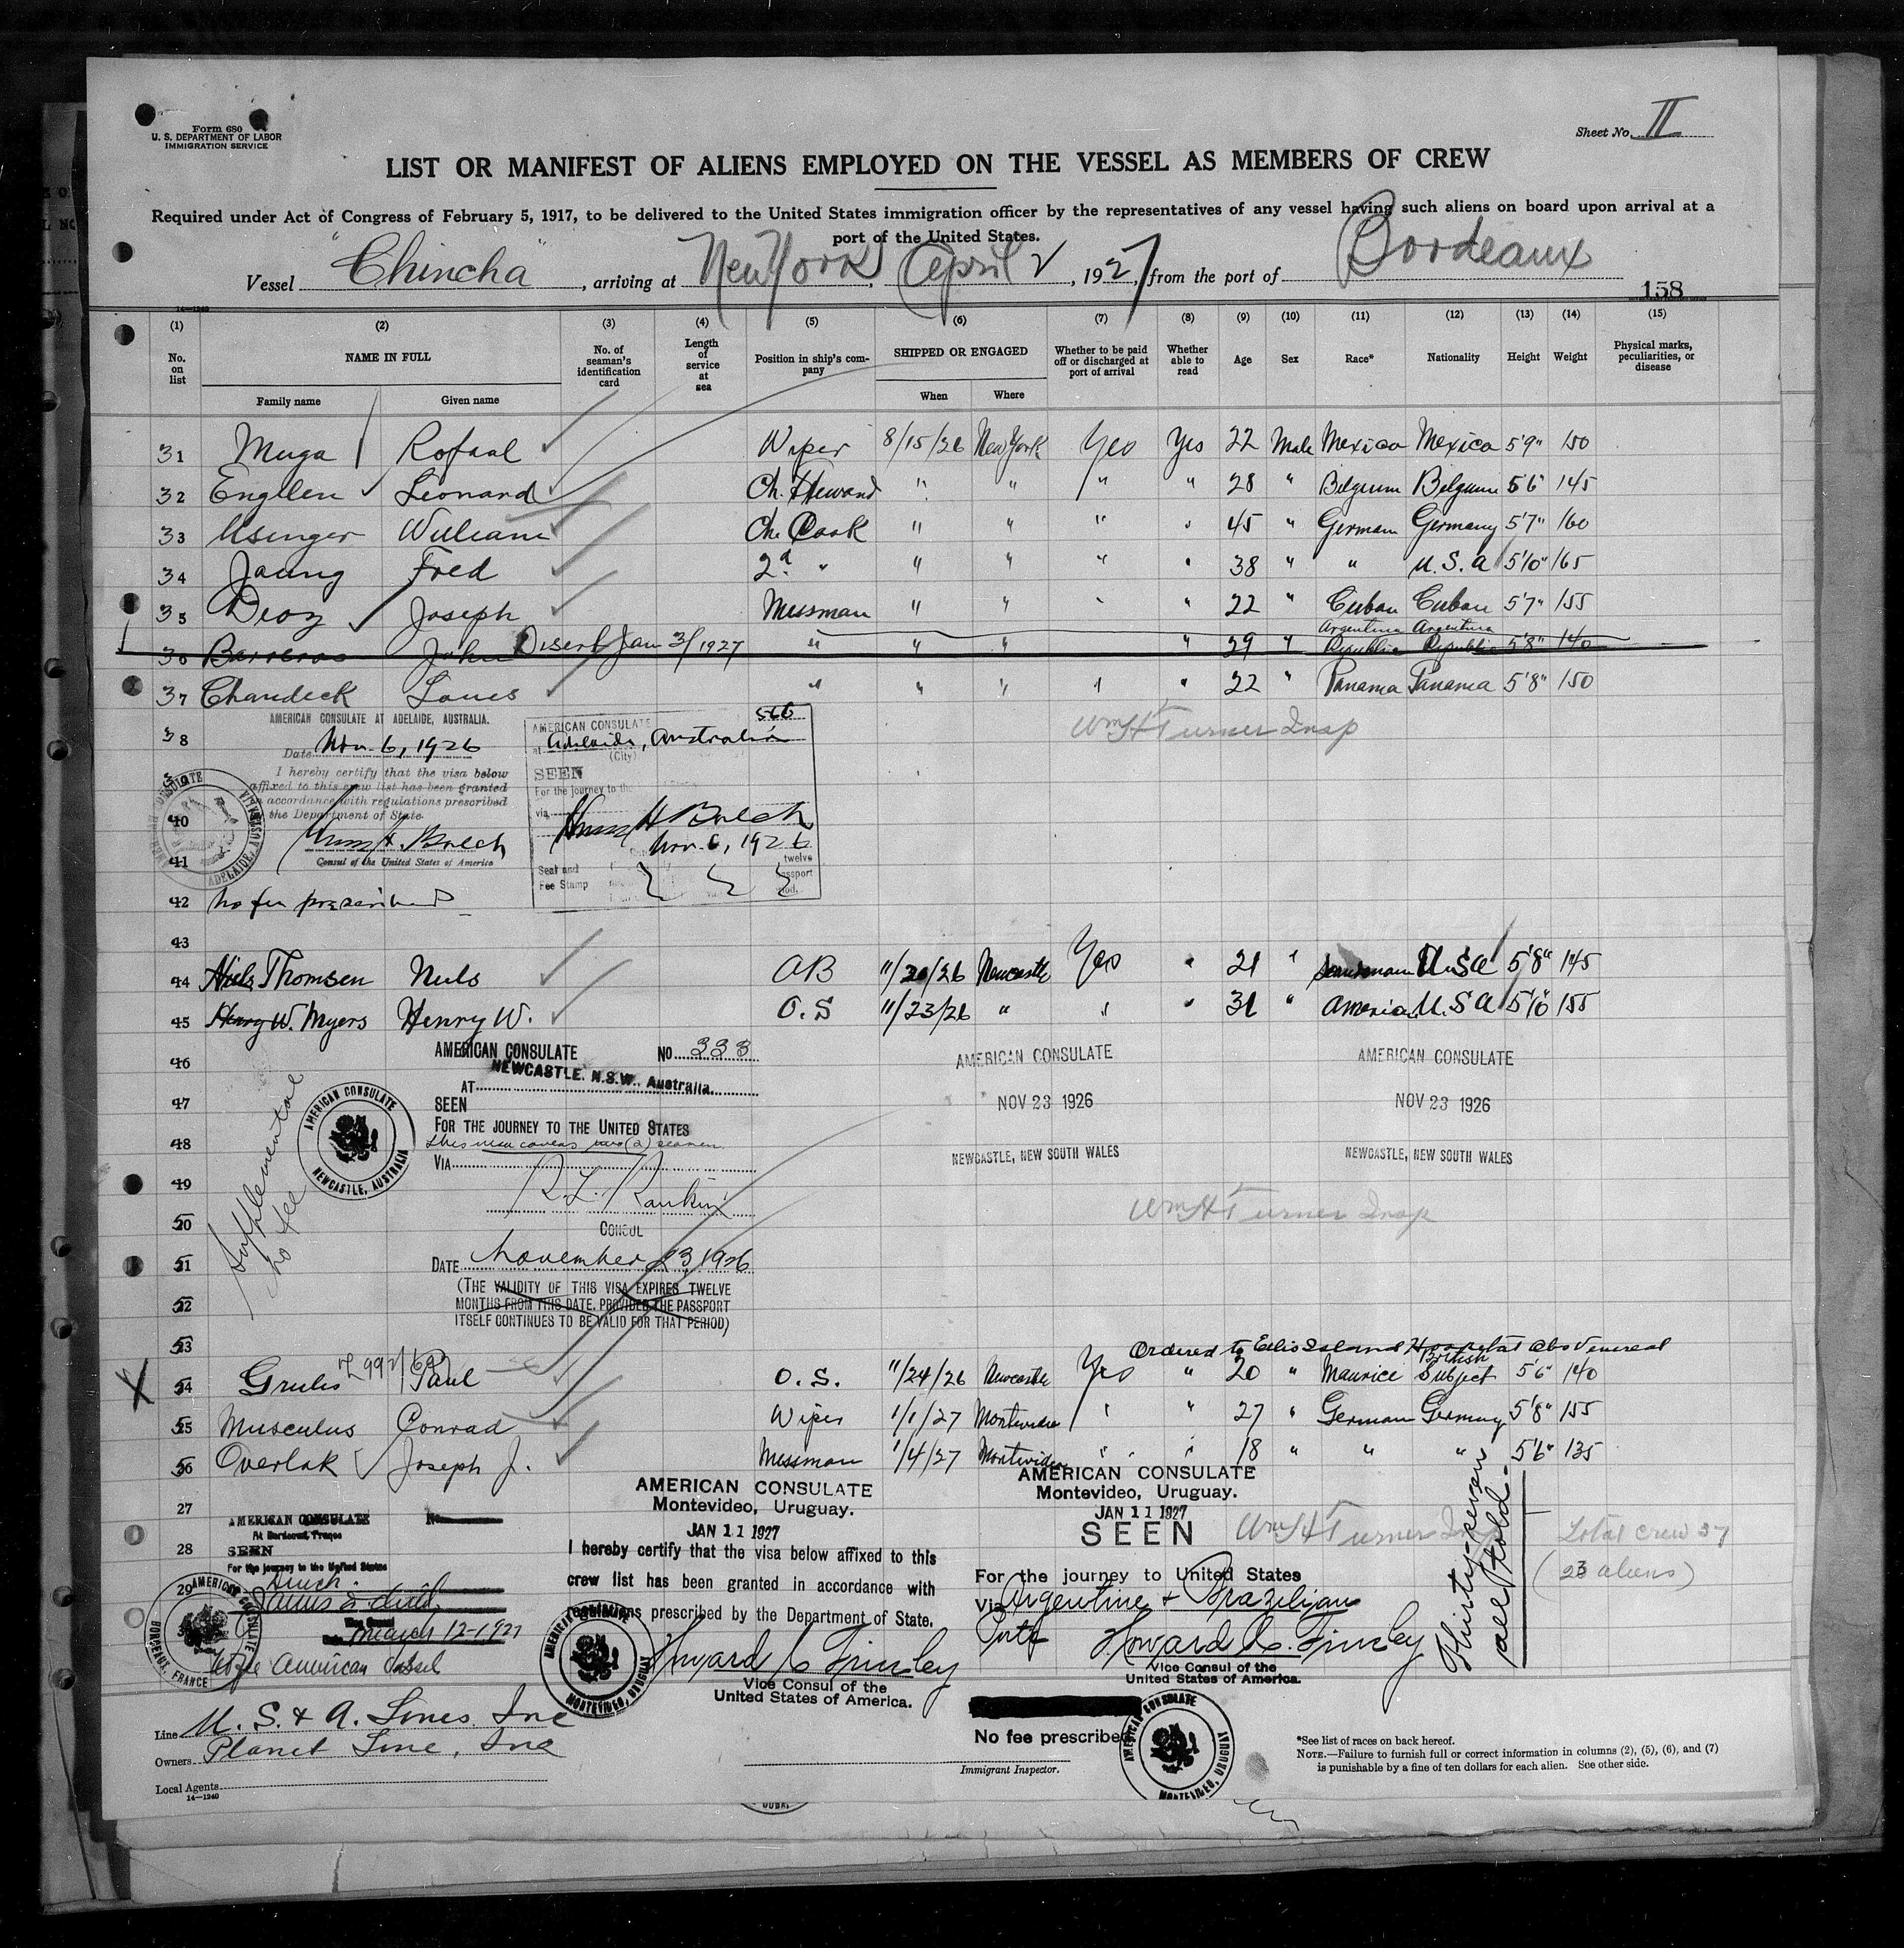 Form 680
U. S. DEPARTMENT OF LABOR
IMMIGRATION SERVICE
Sheet No. II
LIST OR MANIFEST OF ALIENS EMPLOYED ON THE VESSEL AS MEMBERS OF CREW
Required under Act of Congress of February 5, 1917, to be delivered to the United States immigration officer by the representatives of any vessel having such aliens on board upon arrival at a
port of the United States.
Vessel "Chincha", arriving at New York, April 2, 1927, from the port of Bordeaux
14—1240
158
(1) (2) (3) (4) (5) (6) (7) (8) (9) (10) (11) (12) (13) (14) (15)
No. on list
NAME IN FULL
Family name
Given name
No. of seaman's identification card
Length of service at sea
Position in ship's company
SHIPPED OR ENGAGED
When
Where
Whether to be paid off or discharged at port of arrival
Whether able to read
Age
Sex
Race*
Nationality
Height
Weight
Physical marks, peculiarities, or disease
31 Muga Rofaal Wiper 8/15/26 New York Yes Yes 22 Male Mexico Mexico 5'9" 150
32 Engllen Leonard Ch. Steward " " " " 28 " Belgium Belgium 5 6" 145
33 Usinger William Ch. Cook " " " " 45 " German Germany 5'7" 160
34 Jaung Fred 2d " " " " " 38 " " U.S.A 5'10" 165
35 Dioz Joseph Messman " " " " 22 " Cuban Cuban 5'7" 155
36 Barreras John Disert Jan 3/1927 " " " " 29 " Argentina Republic Argentina Republic 5'8" 140
37 Chandeck Louis " " " " " 22 " Panama Panama 5'8" 150
38
AMERICAN CONSULATE AT ADELAIDE, AUSTRALIA.
Date Nov. 6, 1926
I hereby certify that the visa below
affixed to this crew list has been granted
in accordance with regulations prescribed
the Department of State
Consul of the United States of America
566
AMERICAN CONSULATE
at Adelaide, Australia
(City)
SEEN
For the journey to the
via
Nov. 6, 1926
twelve
Seal and
Fee Stamp
Wm H Turner Insp
40
41
42 No fee prescribed
43
44 Niels Thomsen Niels AB 11/20/26 Newcastle Yes " 21 " U.S.A 5'8" 145
45 Henry W. Myers Henry W. O.S 11/23/26 " " " 31 " America U.S.A 5'10" 155
46
AMERICAN CONSULATE No 333
AT NEWCASTLE. N.S.W., Australia.
47
SEEN
FOR THE JOURNEY TO THE UNITED STATES
48
this visa covers two (2) seamen
VIA
49
R. L. Rankin
50
CONSUL
51
DATE November 23, 1926
52
(THE VALIDITY OF THIS VISA EXPIRES TWELVE
MONTHS FROM THIS DATE, PROVIDED THE PASSPORT
ITSELF CONTINUES TO BE VALID FOR THAT PERIOD)
Supplemental
no fee
AMERICAN CONSULATE
NEWCASTLE, AUSTRALIA
AMERICAN CONSULATE
NOV 23 1926
NEWCASTLE, NEW SOUTH WALES
AMERICAN CONSULATE
NOV 23 1926
NEWCASTLE, NEW SOUTH WALES
Wm H Turner Insp
Ordered to Ellis Island Hospital Venereal
X Grulis Paul O.S. 11/24/26 Newcastle Yes " 20 " Maurice British Subject 5'6" 140
Musculus Conrad Wiper 1/1/27 Montevideo " " 27 " German Germany 5'8" 155
Overlak Joseph J. Messman 1/4/27 Montevideo " " 18 " " " 5'6" 135
27
28
29
AMERICAN CONSULATE No
At Bordeaux, France
SEEN
For the journey to the United States
March 12-1927
American Vessel
AMERICAN CONSULATE
BORDEAUX, FRANCE
AMERICAN CONSULATE
Montevideo, Uruguay.
JAN 11 1927
I hereby certify that the visa below affixed to this
crew list has been granted in accordance with
regulations prescribed by the Department of State.
Howard C Finsley
Vice Consul of the
United States of America.
AMERICAN CONSULATE
MONTEVIDEO, URUGUAY
AMERICAN CONSULATE
Montevideo, Uruguay.
JAN 11 1927
SEEN
Wm H Turner Insp
For the journey to United States
Via Argentine & Brazilian
Ports
Howard C. Finsley
Vice Consul of the
United States of America.
No fee prescribed
AMERICAN CONSULATE
MONTEVIDEO, URUGUAY
Thirty-seven
all told.
Total crew 37
(23 aliens)
Line U. S. & A. Lines Inc
Owners Planet Line, Inc
Local Agents
14—1240
Immigrant Inspector.
*See list of races on back hereof.
NOTE.—Failure to furnish full or correct information in columns (2), (5), (6), and (7)
is punishable by a fine of ten dollars for each alien. See other side.